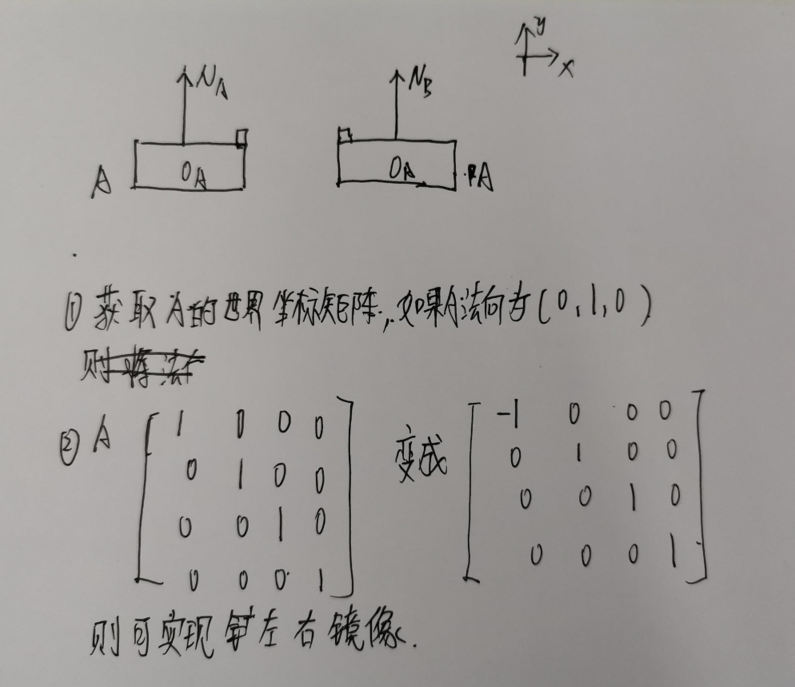 y
x
N_A N_B
A O_A O_A A
① 获取A的世界坐标矩阵,如果A法向为(0,1,0)
则
② A [ 1 0 0 0 变成 [ -1 0 0 0
0 1 0 0 0 1 0 0
0 0 1 0 0 0 1 0
0 0 0 1 ] 0 0 0 1 ]
则可实现 左右镜像.